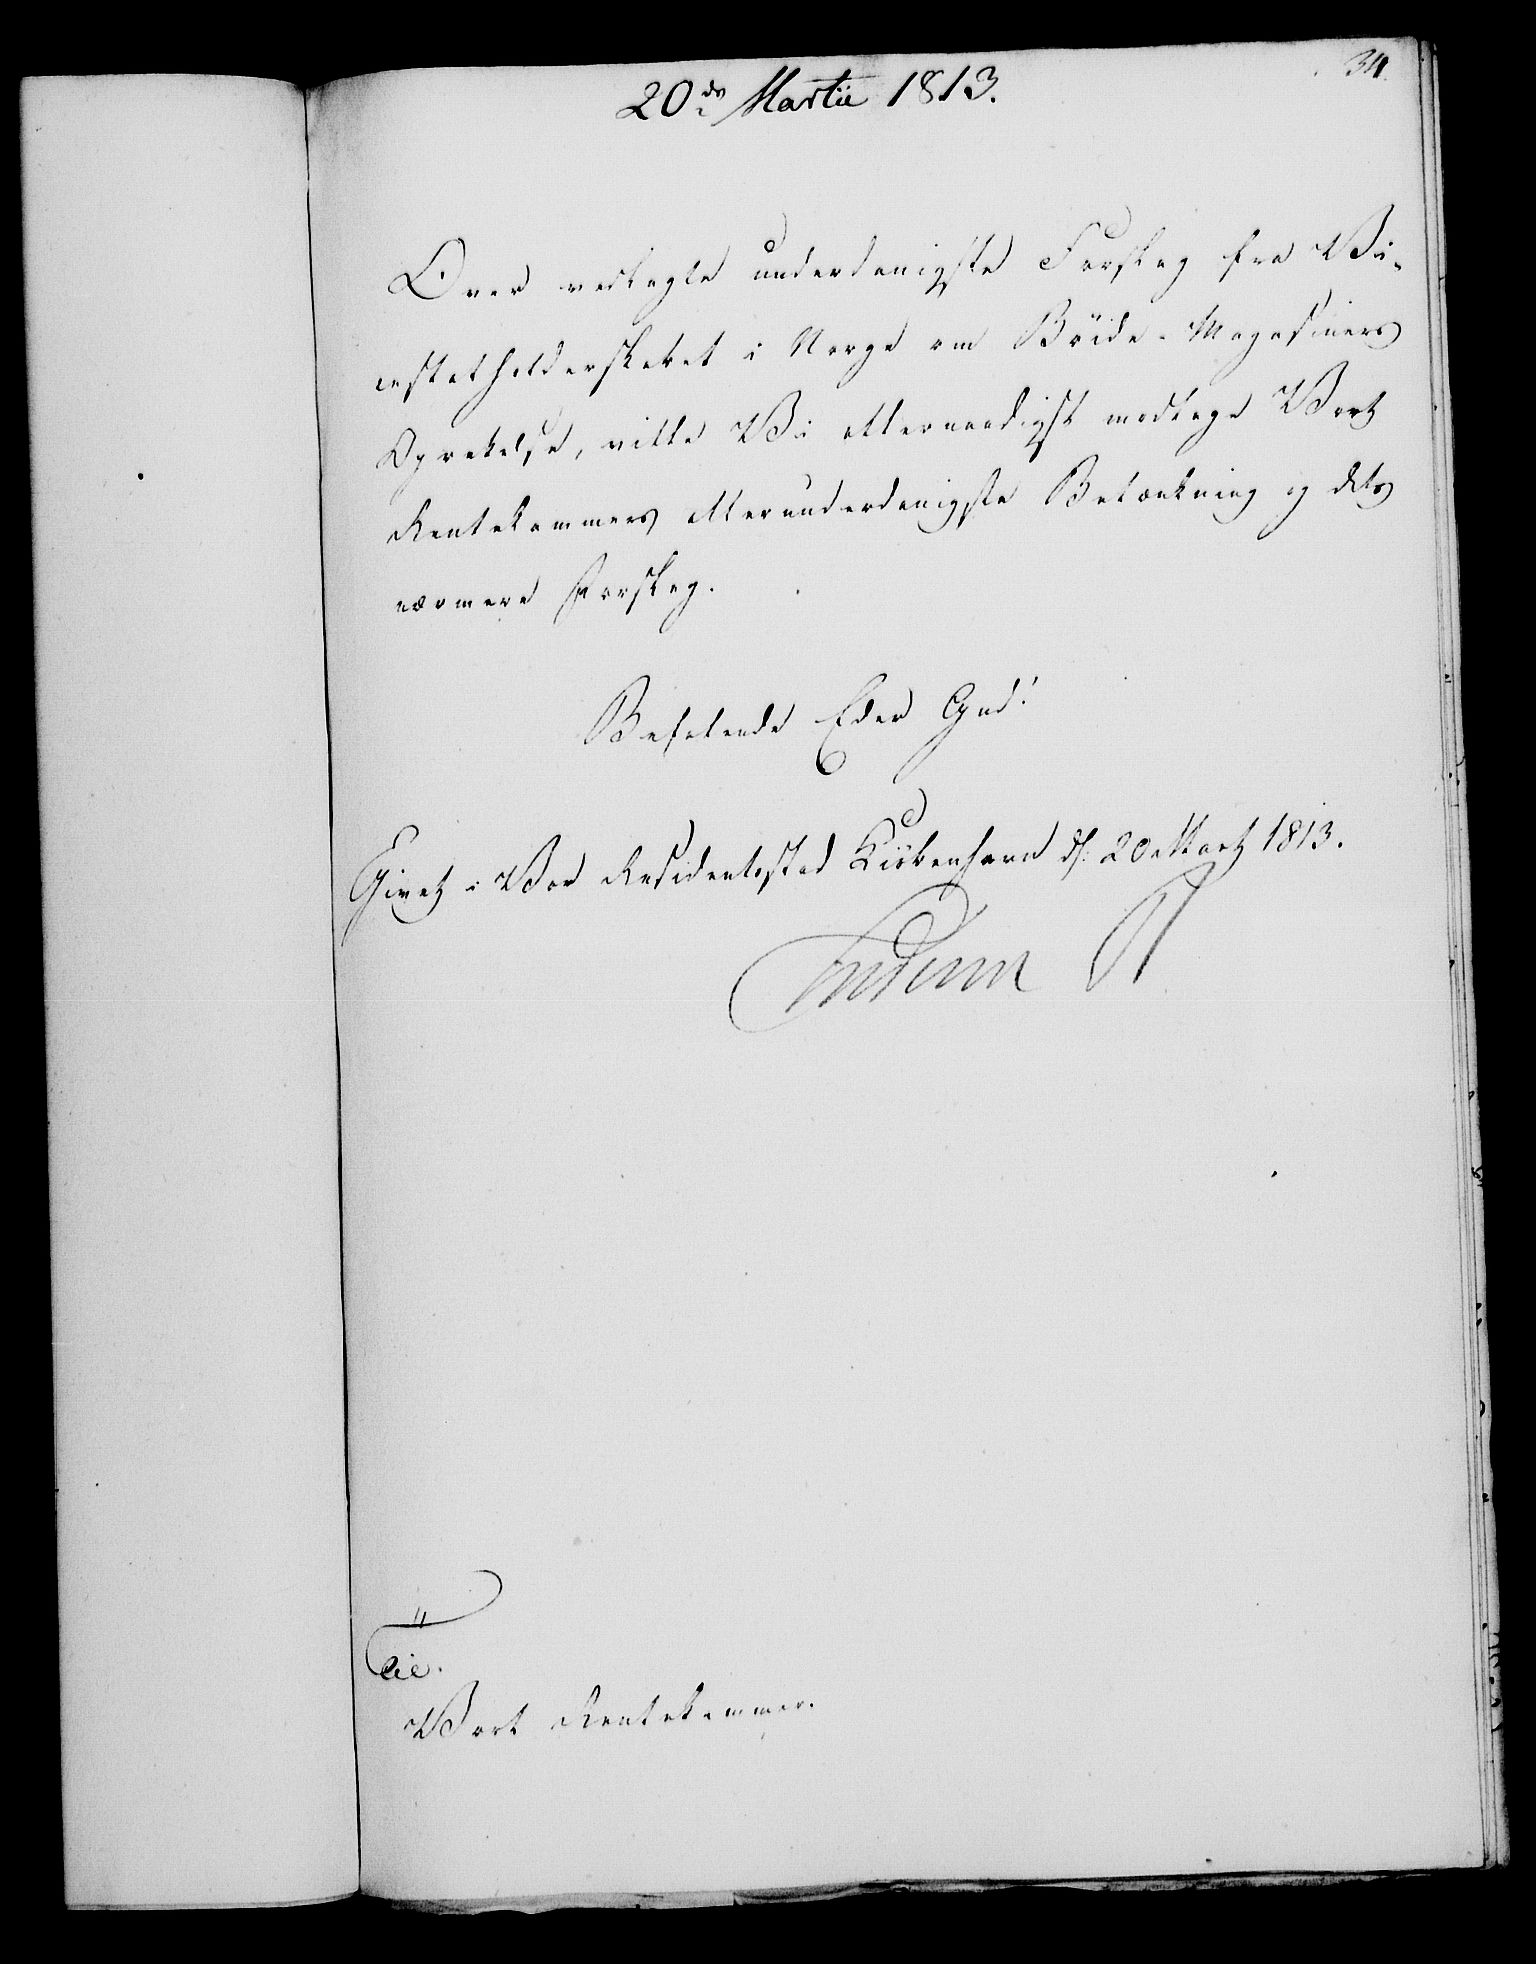 34.
20de Martii 1813.
Over vedlagte underdanigste Forslag fra Vi-
cestatholderskabet i Norge om Böide-Magasiners
Oprettelse, ville Vi allernaadigst modtage Vort
Rentekammers allerunderdanigste Betænkning og dets
nærmere Forslag.
Befalende Eder Gud!
Givet i Vor Residentsstad Kiöbenhavn d: 20 Martz 1813.
Friderich R
Til
Vort Rentekammer.